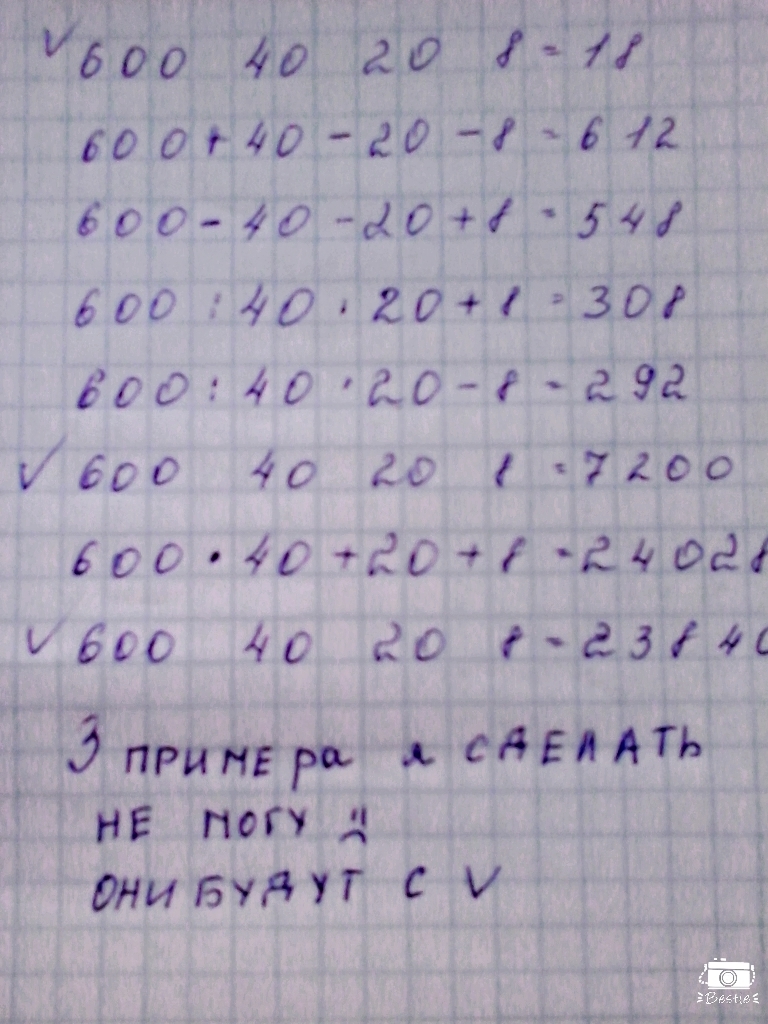 ✓ 600 40 20 8 = 18
600 + 40 - 20 - 8 = 612
600 - 40 - 20 + 8 = 548
600 : 40 · 20 + 8 = 308
600 : 40 · 20 - 8 = 292
✓ 600 40 20 8 = 7200
600 · 40 + 20 + 8 = 24028
✓ 600 40 20 8 = 23840
3 ПРИМЕра я СДЕЛАТЬ
НЕ МОГУ :(
ОНИ БУДУТ С ✓
Bestie